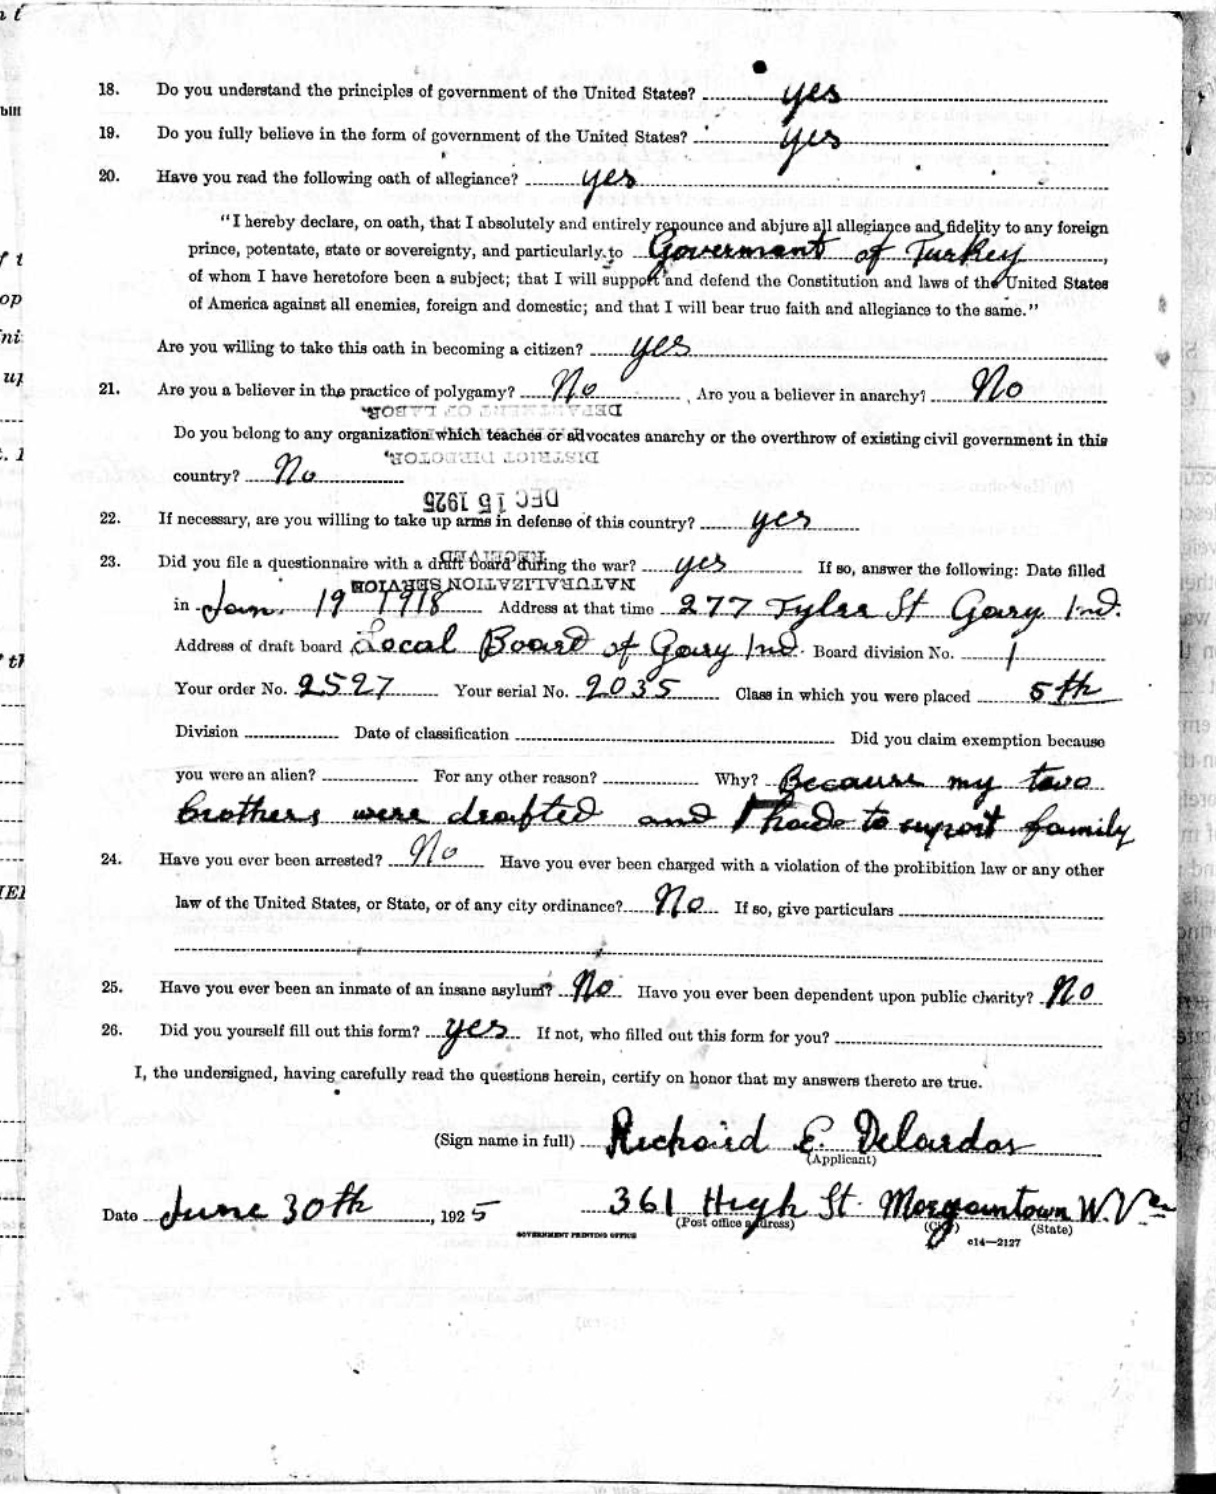 18. Do you understand the principles of government of the United States? yes
19. Do you fully believe in the form of government of the United States? yes
20. Have you read the following oath of allegiance? yes
"I hereby declare, on oath, that I absolutely and entirely renounce and abjure all allegiance and fidelity to any foreign
prince, potentate, state or sovereignty, and particularly to Goverment of Turkey,
of whom I have heretofore been a subject; that I will support and defend the Constitution and laws of the United States
of America against all enemies, foreign and domestic; and that I will bear true faith and allegiance to the same."
Are you willing to take this oath in becoming a citizen? yes
21. Are you a believer in the practice of polygamy? No, Are you a believer in anarchy? No
DEPARTMENT OF LABOR,
Do you belong to any organization which teaches or advocates anarchy or the overthrow of existing civil government in this
DISTRICT DIRECTOR,
country? No
DEC 15 1925
22. If necessary, are you willing to take up arms in defense of this country? yes
RECEIVED
23. Did you file a questionnaire with a draft board during the war? yes If so, answer the following: Date filled
NATURALIZATION SERVICE
in Jan. 19 1918 Address at that time 277 Tyler St Gary Ind.
Address of draft board Local Board of Gary Ind. Board division No. 1
Your order No. 2527 Your serial No. 2035 Class in which you were placed 5th
Division Date of classification Did you claim exemption because
you were an alien? For any other reason? Why? Because my two
brothers were drafted and I hade to suport family
24. Have you ever been arrested? No Have you ever been charged with a violation of the prohibition law or any other
law of the United States, or State, or of any city ordinance? No If so, give particulars
25. Have you ever been an inmate of an insane asylum? No Have you ever been dependent upon public charity? No
26. Did you yourself fill out this form? yes If not, who filled out this form for you?
I, the undersigned, having carefully read the questions herein, certify on honor that my answers thereto are true.
(Sign name in full) Richard E. Delardas
(Applicant)
Date June 30th, 1925 361 High St. Morgantown W.Va
(Post office address) (City) (State)
GOVERNMENT PRINTING OFFICE c14—2127